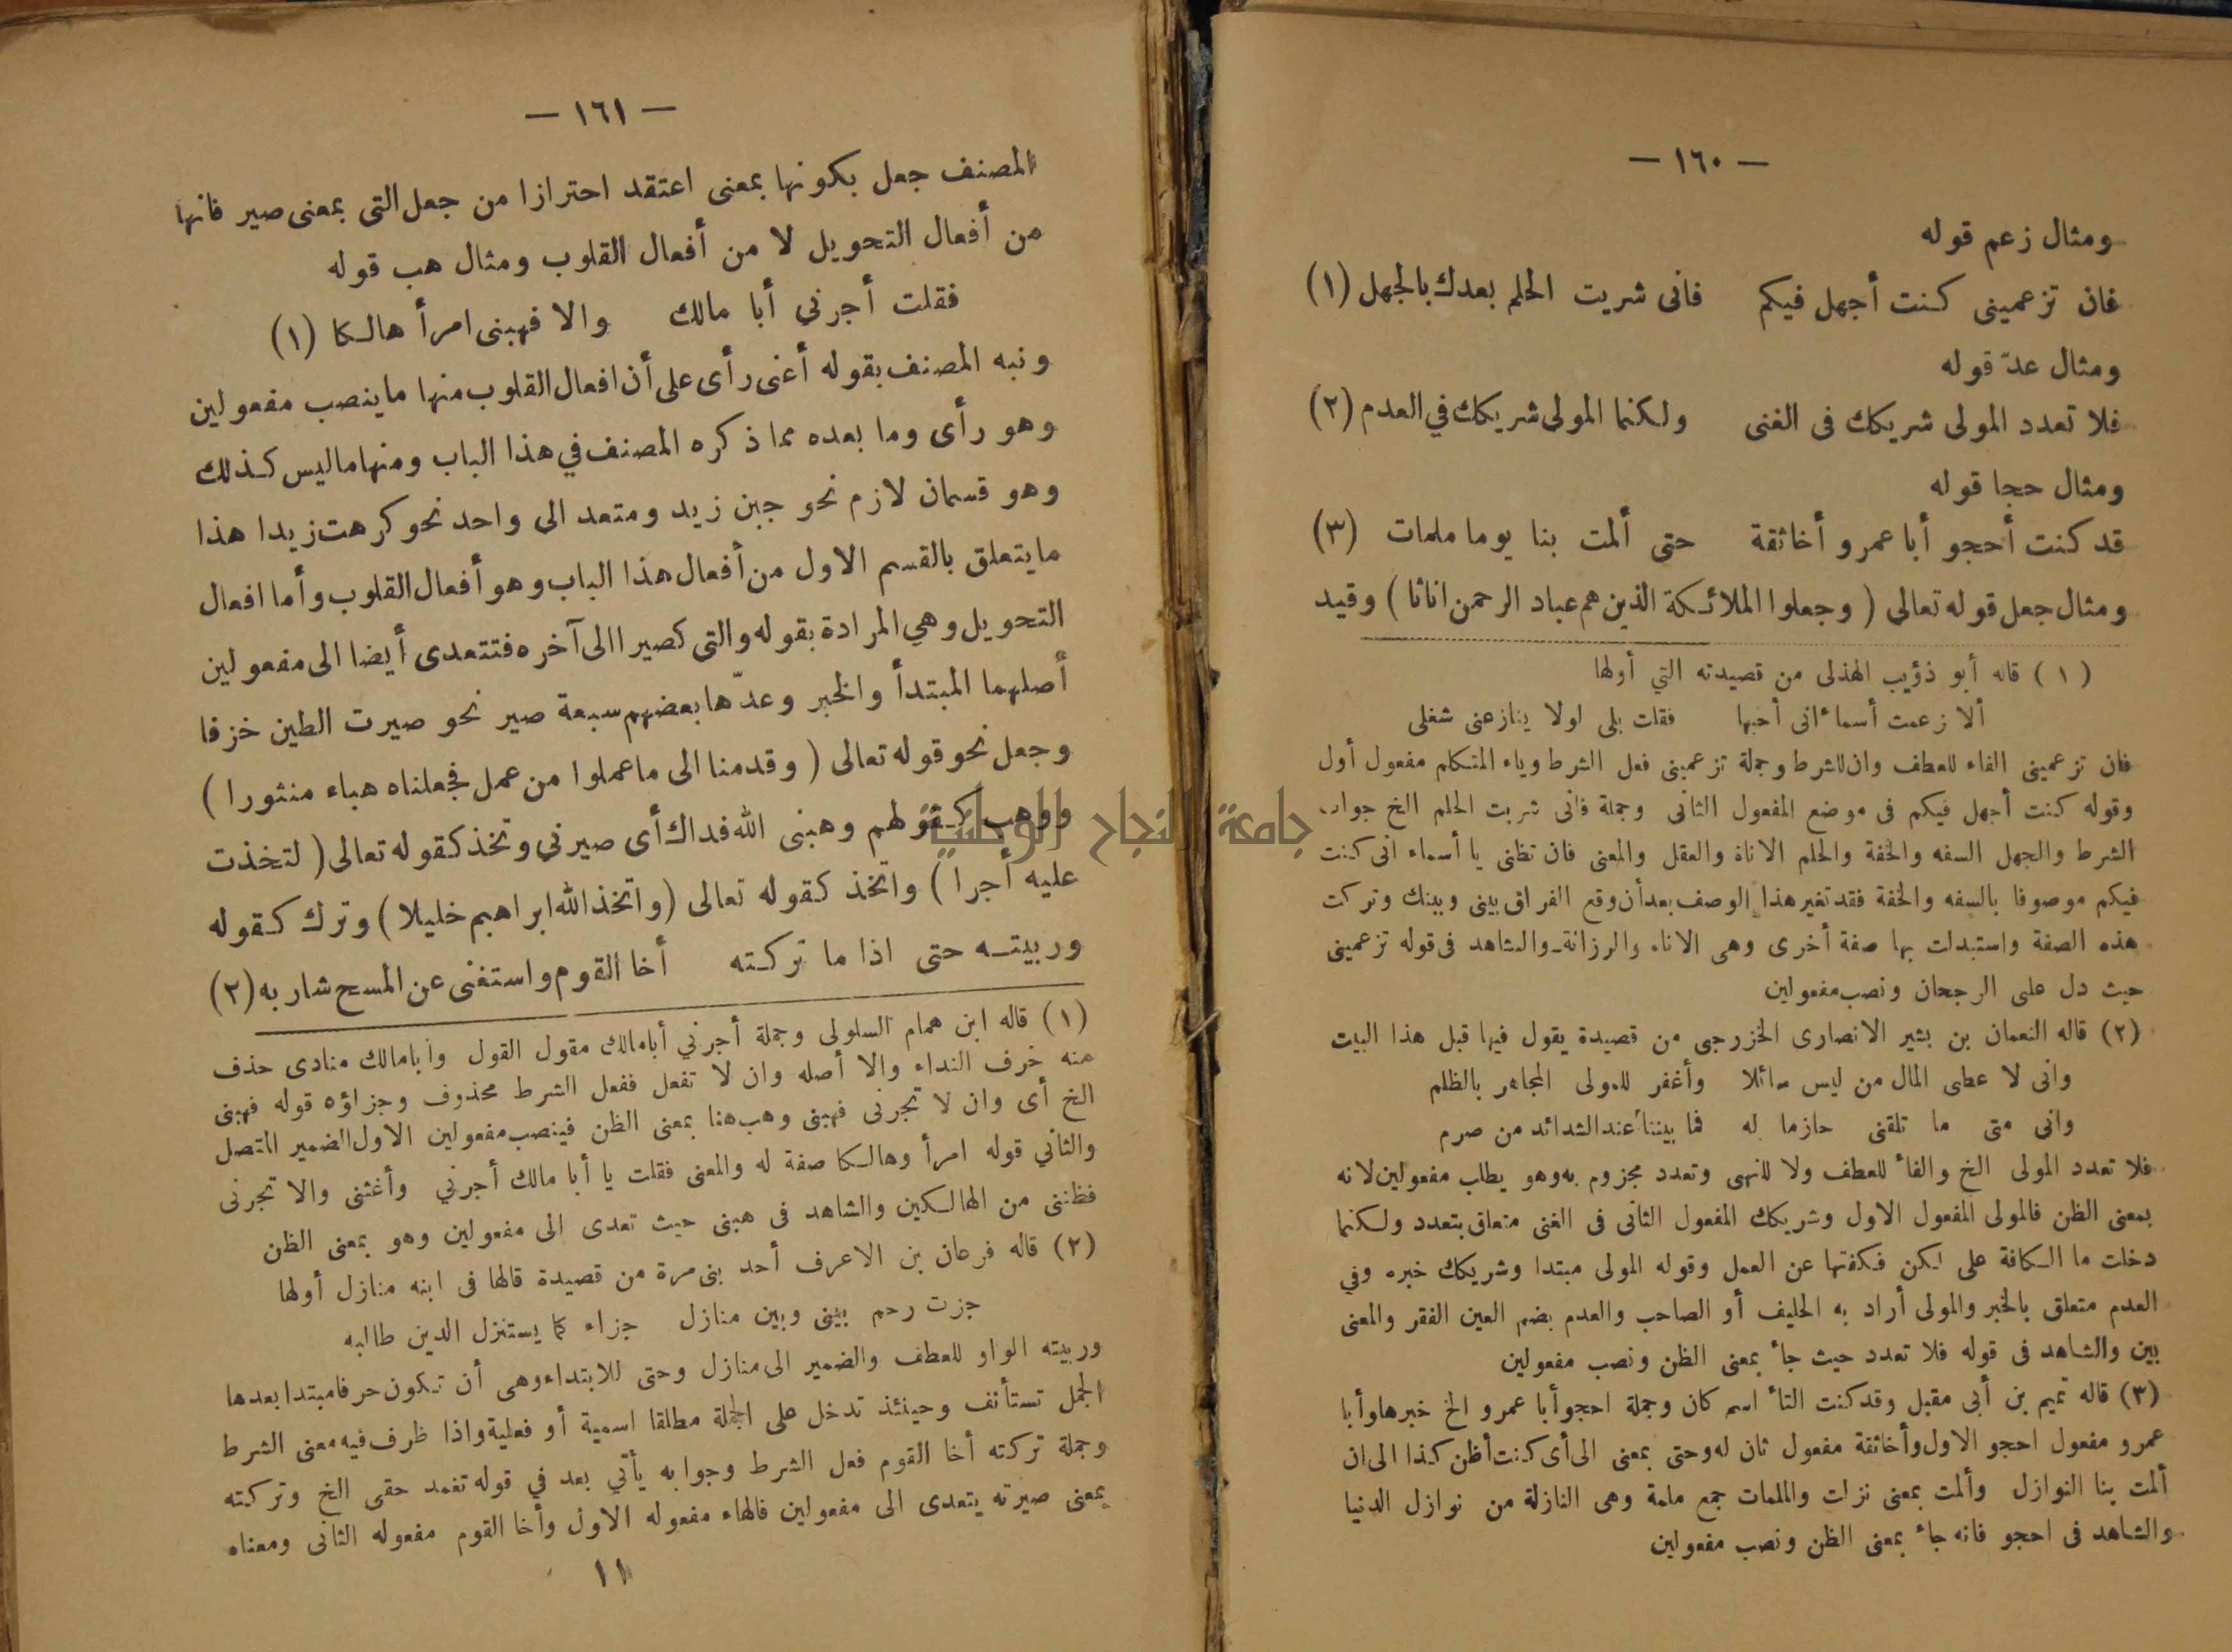 — ١٦٠ —
ومثال زعم قوله
فان تزعميني كنت أجهل فيكم فانى شريت الحلم بعدك بالجهل (١)
ومثال عدّ قوله
فلا تعدد المولى شريكك فى الغنى ولكنما المولى شريكك في العدم (٢)
ومثال حجا قوله
قد كنت أحجو أبا عمرو أخا ثقة حتى ألمت بنا يوما ملمات (٣)
ومثال جعل قوله تعالى ( وجعلوا الملائكة الذين هم عباد الرحمن اناثا ) وقيد
( ١ ) قاله أبو ذؤيب الهذلى من قصيدته التي أولها
ألا زعمت أسماء انى أحبها فقلت بلى لولا ينازعنى شغلى
فان تزعمينى الفاء للعطف وان للشرط وجملة تزعمينى فعل الشرط وياء المتكلم مفعول أول
وقوله كنت أجهل فيكم فى موضع المفعول الثانى وجملة فانى شريت الحلم الخ جواب
الشرط والجهل السفه والخفة والحلم الاناة والعقل والمعنى فان تظنى يا أسماء انى كنت
فيكم موصوفا بالسفه والخفة فقد تغير هذا الوصف بعد أن وقع الفراق بينى وبينك وتركت
هذه الصفة واستبدلت بها صفة أخرى وهى الاناة والرزانة ـ والشاهد فى قوله تزعمينى
حيث دل على الرجحان ونصب مفعولين
(٢) قاله النعمان بن بشير الانصارى الخزرجى من قصيدة يقول فيها قبل هذا البيت
وانى لا عطى المال من ليس سائلا وأغفر للمولى المجاهر بالظلم
وانى متى ما تلقنى حازما له فما بيننا عند الشدائد من صرم
فلا تعدد المولى الخ والفاء للعطف ولا للنهى وتعدد مجزوم به وهو يطلب مفعولين لانه
بمعنى الظن فالمولى المفعول الاول وشريكك المفعول الثانى فى الغنى متعلق بتعدد ولكنما
دخلت ما الكافة على لكن فكفتها عن العمل وقوله المولى مبتدا وشريكك خبره وفي
العدم متعلق بالخبر والمولى أراد به الحليف أو الصاحب والعدم بضم العين الفقر والمعنى
بين والشاهد فى قوله فلا تعدد حيث جاء بمعنى الظن ونصب مفعولين
(٣) قاله تميم بن أبى مقبل وقد كنت التاء اسم كان وجملة احجو أبا عمرو الخ خبرها وأبا
عمرو مفعول احجو الاول وأخا ثقة مفعول ثان له وحتى بمعنى الى أى كنت أظن كذا الى ان
ألمت بنا النوازل وألمت بمعنى نزلت والملمات جمع ملمة وهى النازلة من نوازل الدنيا
والشاهد فى احجو فانه جاء بمعنى الظن ونصب مفعولين
— ١٦١ —
المصنف جعل بكونها بمعنى اعتقد احترازا من جعل التى بمعنى صير فانها
من أفعال التحويل لا من أفعال القلوب ومثال هب قوله
فقلت أجرني أبا مالك والا فهبنى امرأ هالكا (١)
ونبه المصنف بقوله أعنى رأى على أن افعال القلوب منها ما ينصب مفعولين
وهو رأى وما بعده مما ذكره المصنف في هذا الباب ومنها ما ليس كذلك
وهو قسمان لازم نحو جبن زيد ومتعد الى واحد نحو كرهت زيدا هذا
ما يتعلق بالقسم الاول من أفعال هذا الباب وهو أفعال القلوب وأما افعال
التحويل وهي المرادة بقوله والتى كصيرا الى آخره فتتعدى أيضا الى مفعولين
أصلهما المبتدأ والخبر وعدّها بعضهم سبعة صير نحو صيرت الطين خزفا
وجعل نحو قوله تعالى ( وقدمنا الى ما عملوا من عمل فجعلناه هباء منثورا )
ووهب كقولهم وهبنى الله فداك أى صيرني وتخذ كقوله تعالى ( لتخذت
عليه أجرا ) واتخذ كقوله تعالى (واتخذ الله ابراهيم خليلا ) وترك كقوله
وربيته حتى اذا ما تركته أخا القوم واستغنى عن المسح شاربه (٢)
(١) قاله ابن همام السلولى وجملة أجرني أبا مالك مقول القول وأبا مالك منادى حذف
منه حرف النداء والا أصله وان لا تفعل ففعل الشرط محذوف وجزاؤه قوله فهبنى
الخ أى وان لا تجرنى فهبنى وهب هنا بمعنى الظن فينصب مفعولين الاول الضمير المتصل
والثاني قوله امرأ وهالكا صفة له والمعنى فقلت يا أبا مالك أجرني وأغثنى والا تجرنى
فظننى من الهالكين والشاهد فى هبنى حيث تعدى الى مفعولين وهو بمعنى الظن
(٢) قاله فرعان بن الاعرف أحد بنى مرة من قصيدة قالها فى ابنه منازل أولها
جزت رحم بينى وبين منازل جزاء كما يستنزل الدين طالبه
وربيته الواو للعطف والضمير الى منازل وحتى للابتداء وهى أن تكون حرفا مبتدا بعدها
الجمل تستأنف وحينئذ تدخل على الجملة مطلقا اسمية أو فعلية واذا ظرف فيه معنى الشرط
وجملة تركته أخا القوم فعل الشرط وجوابه يأتي بعد في قوله تغمد حقى الخ وتركته
بمعنى صيرته يتعدى الى مفعولين فالهاء مفعوله الاول وأخا القوم مفعوله الثانى ومعناه
١١
جامعة النجاح الوطنية